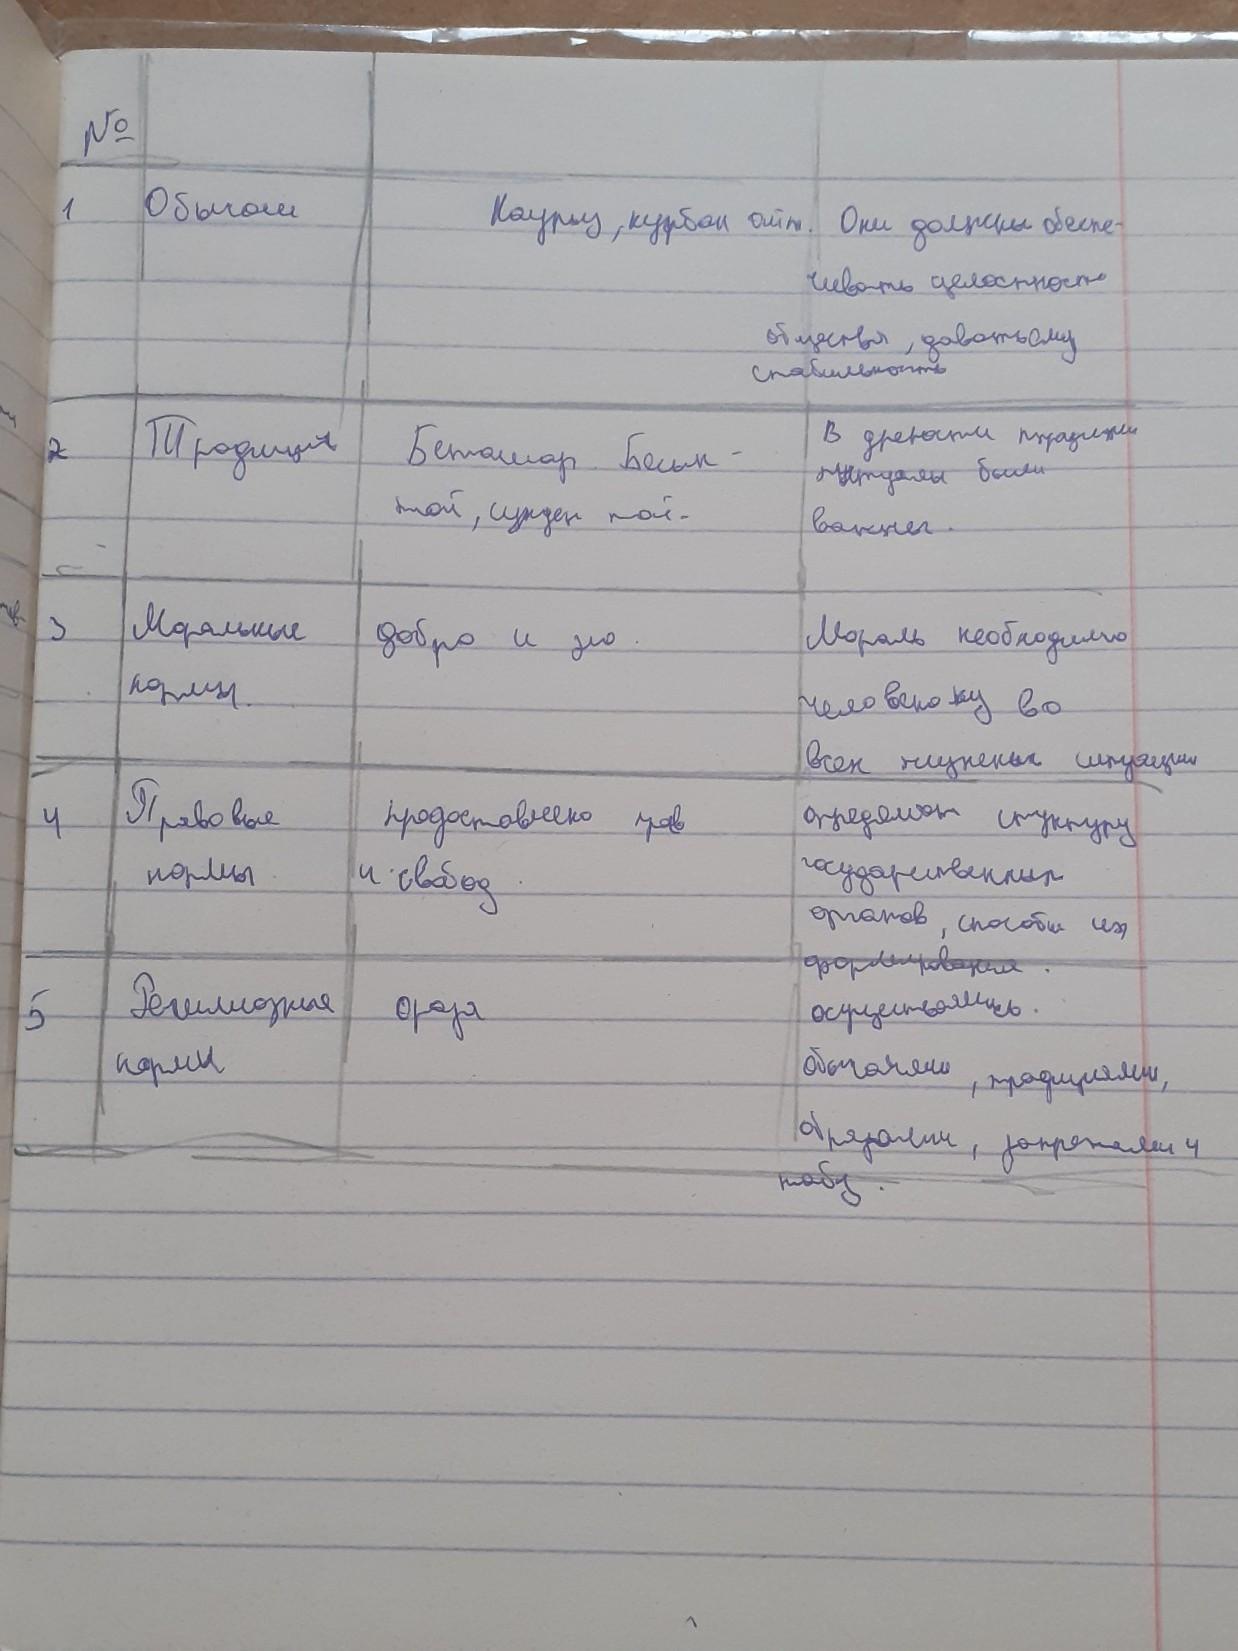 №
1 Обычаи Наурыз, курбан айт. Они должны обеспе-
чивать целостность
общества, давать ему
стабильность
2 Традиция Беташар Бесік- В древности традиции
той, сүндет той- ритуалы были
важны.
3 Моральные добро и зло. Мораль необходимо
нормы. человеку во
всех жизненых ситуации
4 Правовые предоставлено прав определяют структуру
нормы и свобод. государственных
органов, способы их
формирования.
5 Регилиозные ораза осуществлялись.
нормы обычаями, традициями,
обрядами, запретами и
табу.